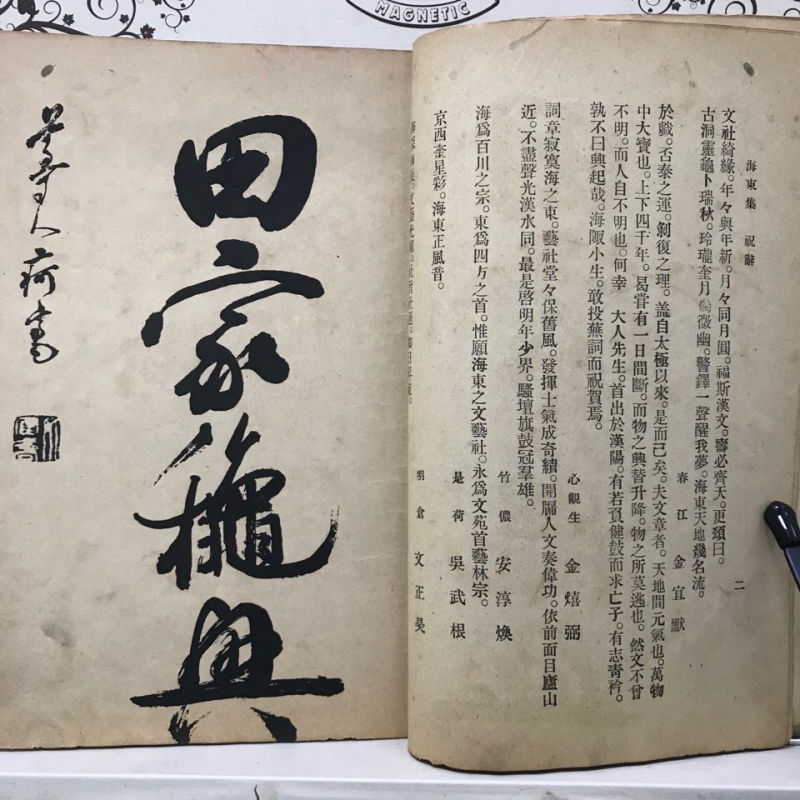 海東集 祝辭
二
文社綺緣。年々與年新。月々同月圓。福斯漢文。壽必齊天。更頌曰。
古洞靈龜卜瑞秋。玲瓏奎月燭微幽。警鐸一聲醒我夢。海東天地幾名流。
春江 金宜默
於戱。否泰之運。剝復之理。盖自太極以來。是而已矣。夫文章者。天地間元氣也。萬物
中大寶也。上下四千年。曷嘗有一日間斷。而物之興替升降。物之所莫逃也。然文不曾
不明。而人自不明也。何幸 大人先生。首出於漢陽。有若負健鼓而求亡子。有志靑衿。
孰不曰興起哉。海陬小生。敢投蕪詞而祝賀焉。
心觀生 金熺弼
詞章寂寞海之東。藝社堂々保舊風。發揮士氣成奇績。開牖人文奏偉功。依前面目廬山
近。不盡聲光漢水同。最是啓明年少界。騷壇旗鼓冠羣雄。
竹儂 安淳煥
海爲百川之宗。東爲四方之首。惟願海東之文藝社。永爲文苑首藝林宗。
是荷 吳武根
京西奎星彩。海東正風音。
明倉 文正昊
田家興
MAGNETIC